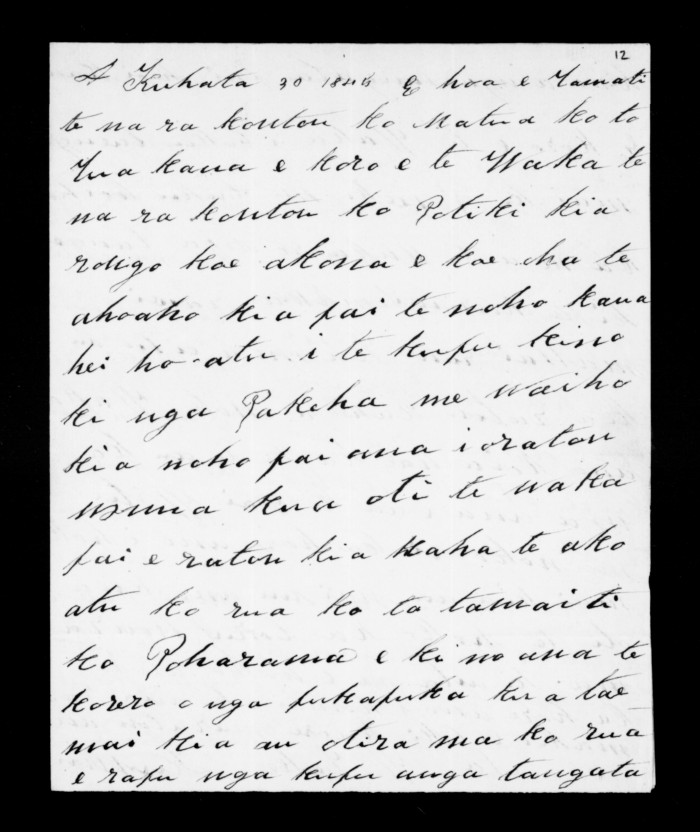 12
A Kuhata 30 1846 E hoa e Tamati
te na ra koutou ko Matua ko to
Tua kana e koro e te Waka te
na ra koutou ko Potiki kia
rongo koe akona e koe cha te
ahoaho kia pai te noho kaua
hei ho-atu i te kupu kino
ki nga Pakeha me waiho
kia noho pai ana i oratou
kua oti te waka
pai e ratou kia kaha te ako
atu ko rua ko ta tamaiti
ko Poharama e ki no ana te
korero o nga pukapuka kua tae
mai kia au otira ma ko rua
e rapu nga kupu anga tangata